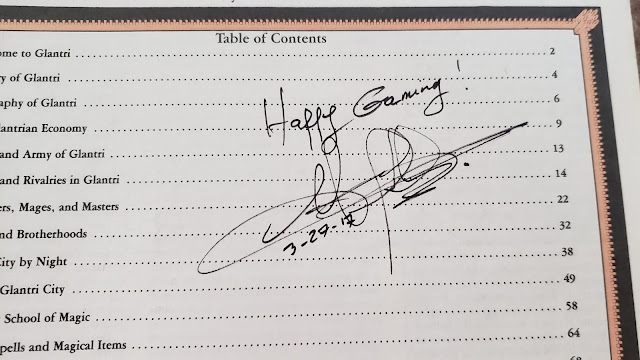 Table of Contents
ome to Glantri ........ 2
ry of Glantri ........ 4
Happy Gaming!
aphy of Glantri ........ 6
lantrian Economy ........ 9
and Army of Glantri ........ 13
and Rivalries in Glantri ........ 14
ers, Mages, and Masters ........ 22
nd Brotherhoods ........ 32
3-29-17
City by Night ........ 38
Glantri City ........ 49
School of Magic ........ 58
pells and Magical Items ........ 64